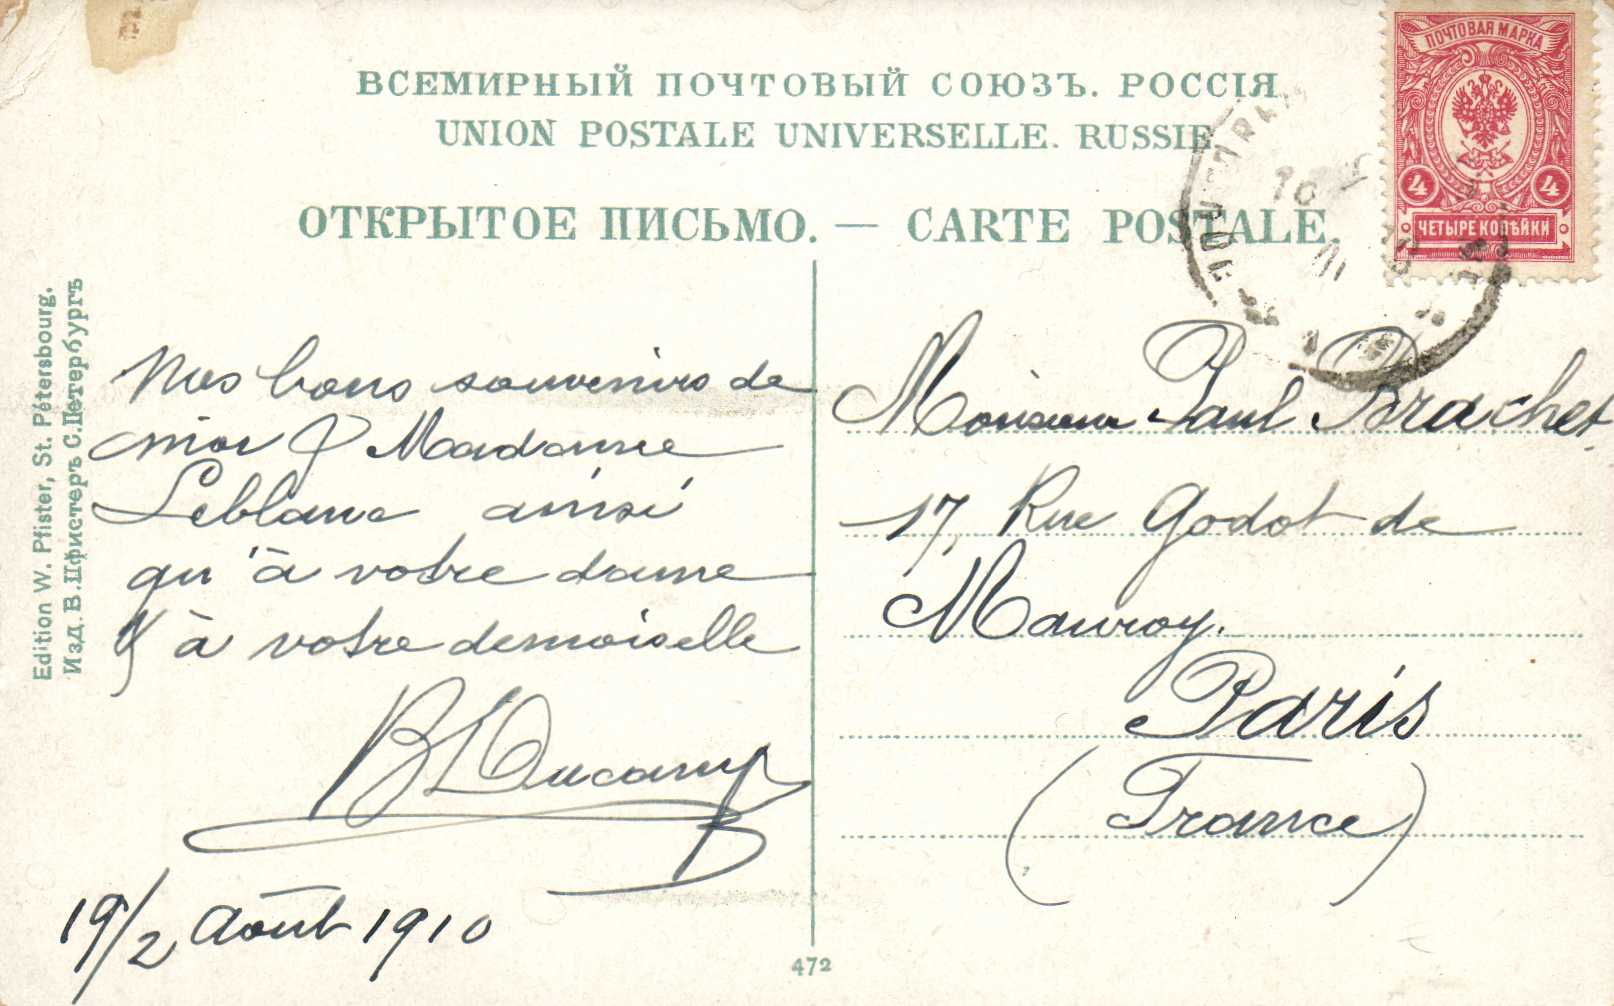 ВСЕМИРНЫЙ ПОЧТОВЫЙ СОЮЗЪ. РОССІЯ
UNION POSTALE UNIVERSELLE. RUSSIE.
ОТКРЫТОЕ ПИСЬМО. — CARTE POSTALE.
ПОЧТОВАЯ МАРКА
4 4
ЧЕТЫРЕ КОПѢЙКИ
Edition W. Pfister, St. Pétersbourg.
Изд. В. Пфистеръ С. Петербургъ
Mes bons souvenirs de
moi & Madame
Leblanc ainsi
qu'à votre dame
& à votre demoiselle
Ducamp
19/2 Août 1910
Monsieur Paul Brachet
17, Rue Godot de
Mauroy.
Paris
(France)
472